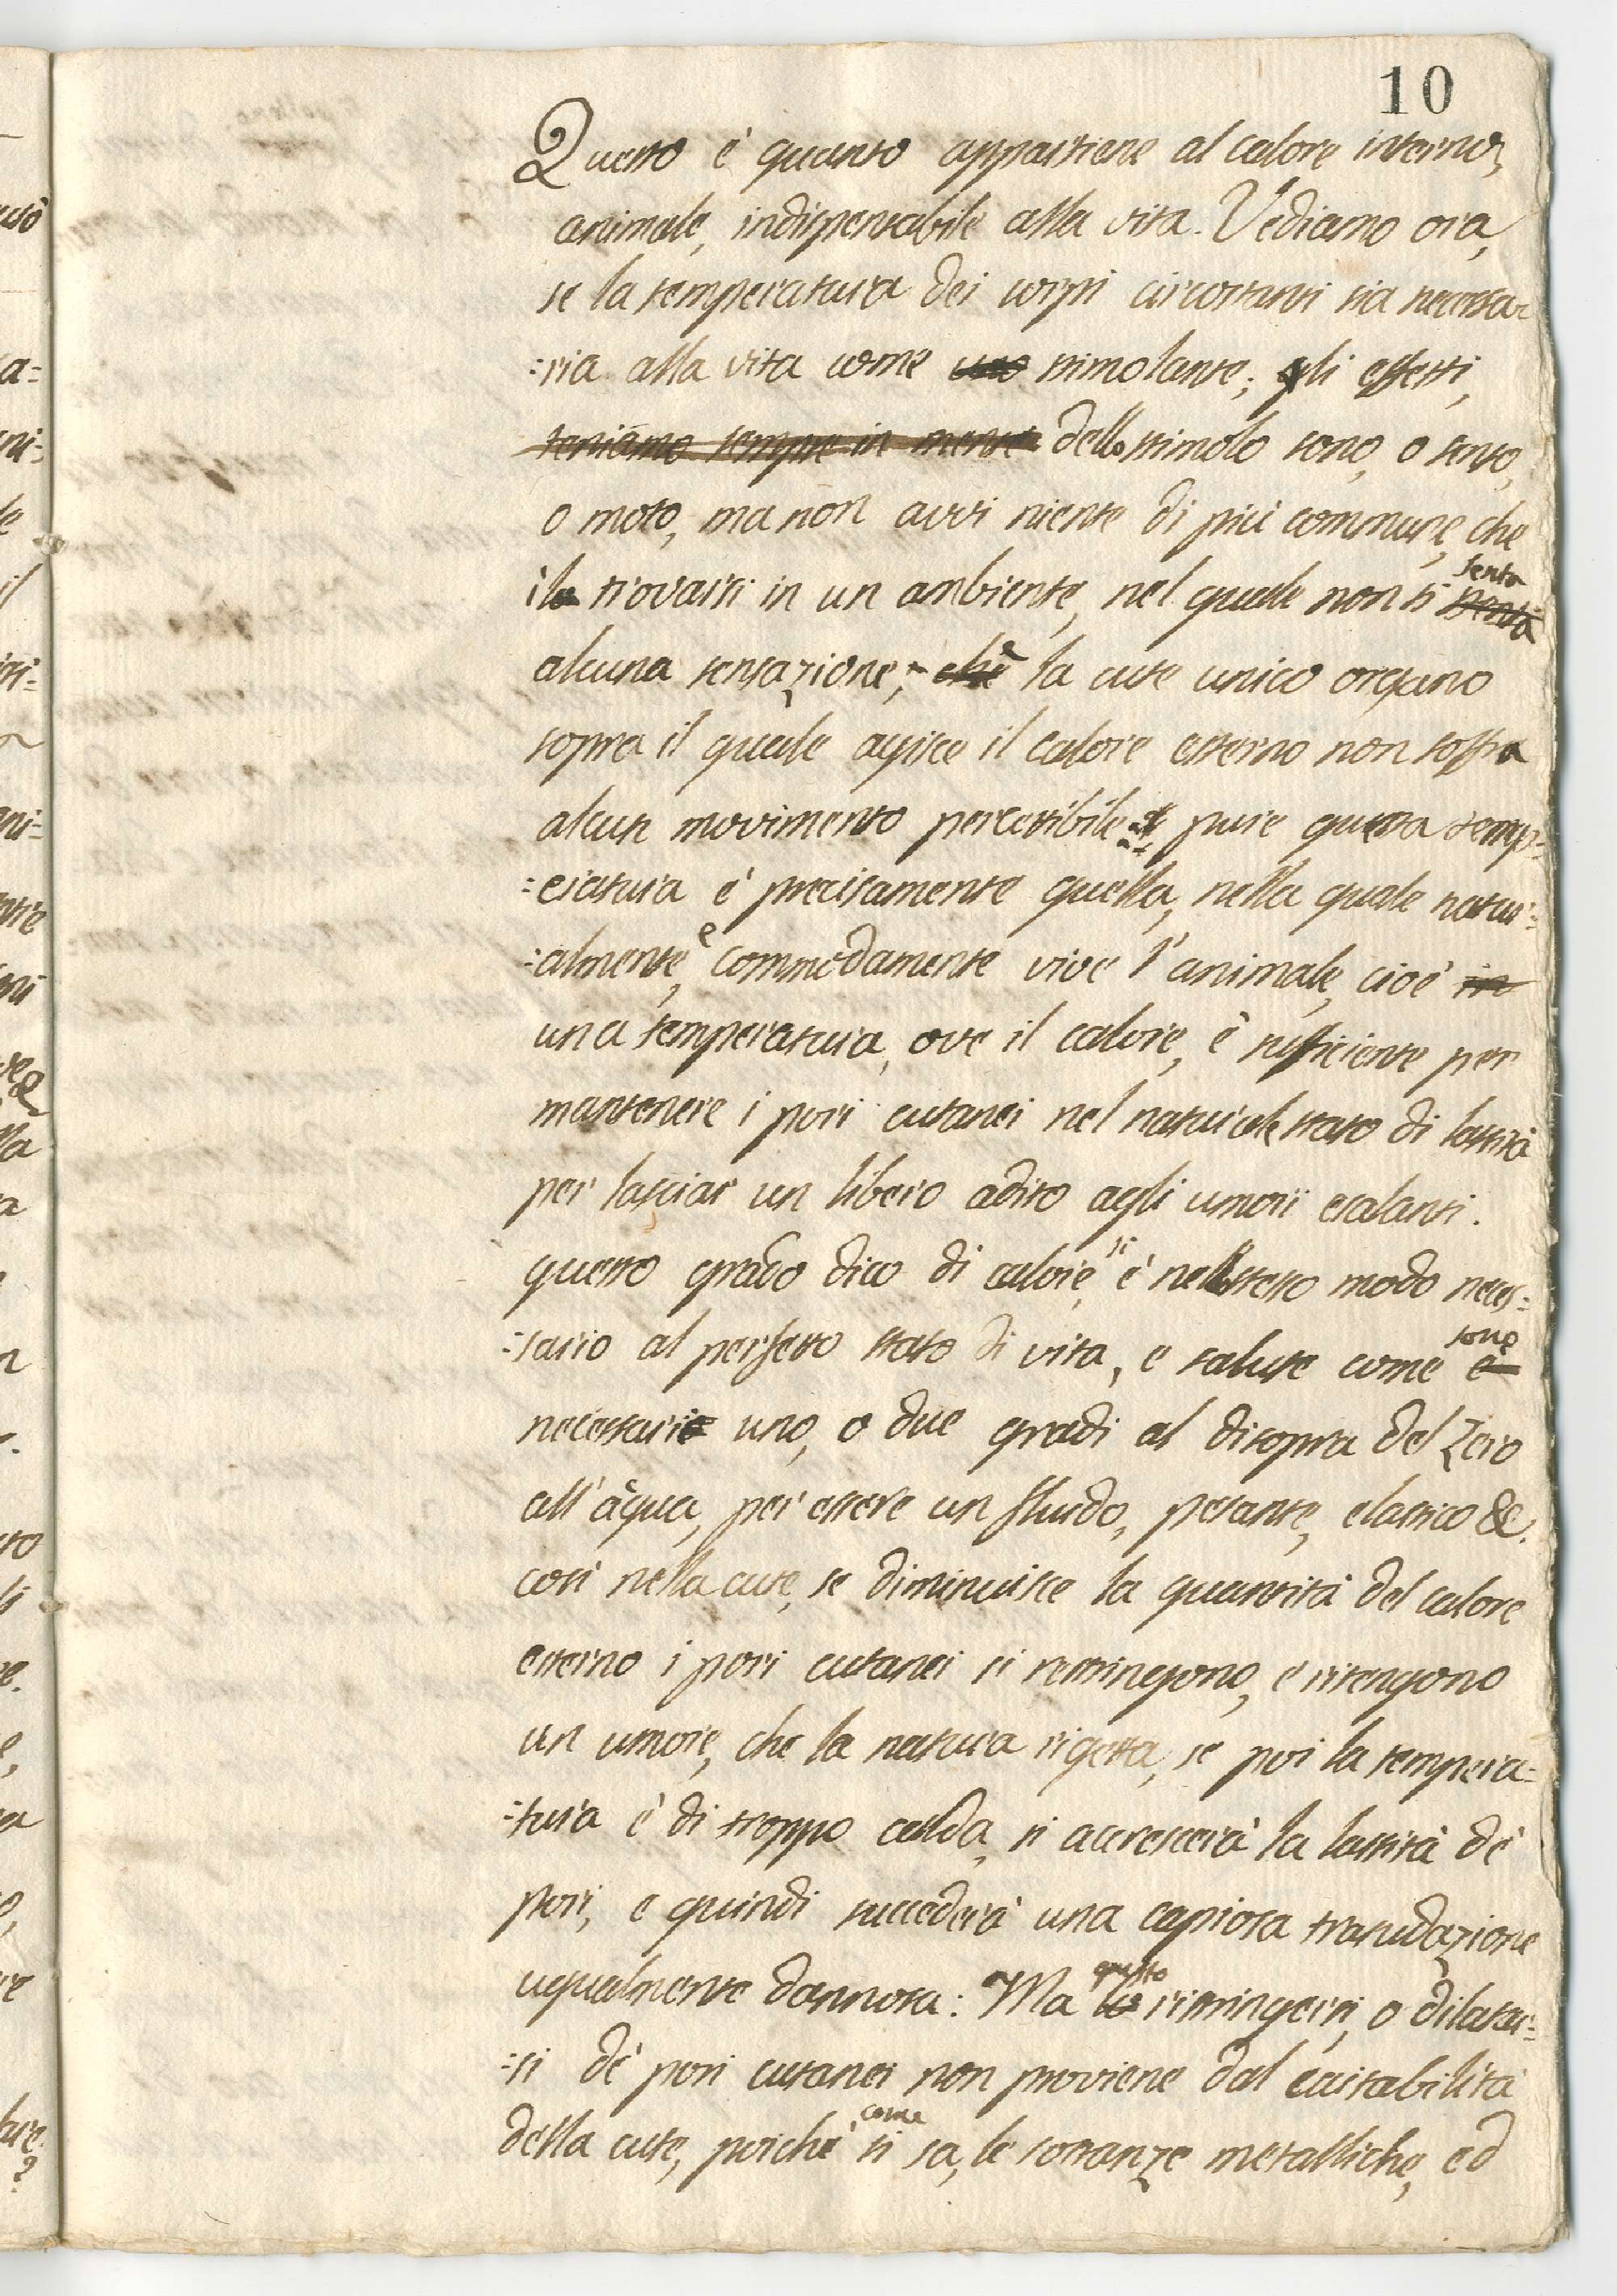 10
Questo è quanto appartiene al calore interno,
animale, indispensabile alla vita. Vediamo ora,
se la temperatura dei corpi circostanti sia necessa-
:ria alla vita come uno stimolante; gli effetti,
teniamo sempre in mente dello stimolo sono, o senso,
o moto, ma non avvi niente di più commune, che
il trovarsi in un ambiente, nel quale non si senta
alcuna sensazione; che la cute unico organo
sopra il quale agisce il calore esterno non soffra
alcun movimento percettibile, pure questa temp=
=eratura è precisamente quella, nella quale natur=
=almente, e commodamente vive l'animale, cioè in
una temperatura, ove il calore, è sufficiente per
mantenere i pori cutanei nel naturale stato di lassità
per lasciar un libero adito agli umori esalanti.
questo grado dico di calore, sì è nello stesso modo neces=
:sario al perfetto stato di vita, e salute come è sono
necessarie uno, o due gradi al disopra del Zero
all'aqua, per essere un fluido, pesante, elastico &.
così nella cute, se diminuisce la quantità del calore
esterno i pori cutanei si restringono, e ritengono
un umore, che la natura rigetta, se poi la tempera=
:tura è di troppo calda, si accrescerà la lassità de'
pori, e quindi succederà una copiosa trasudazione
ugualmente dannosa: Ma lo questo ristringersi, o dilatar=
:si de' pori cutanei non proviene dal eccitabilità
della cute, poichè come si sa, le sostanze metalliche, ed